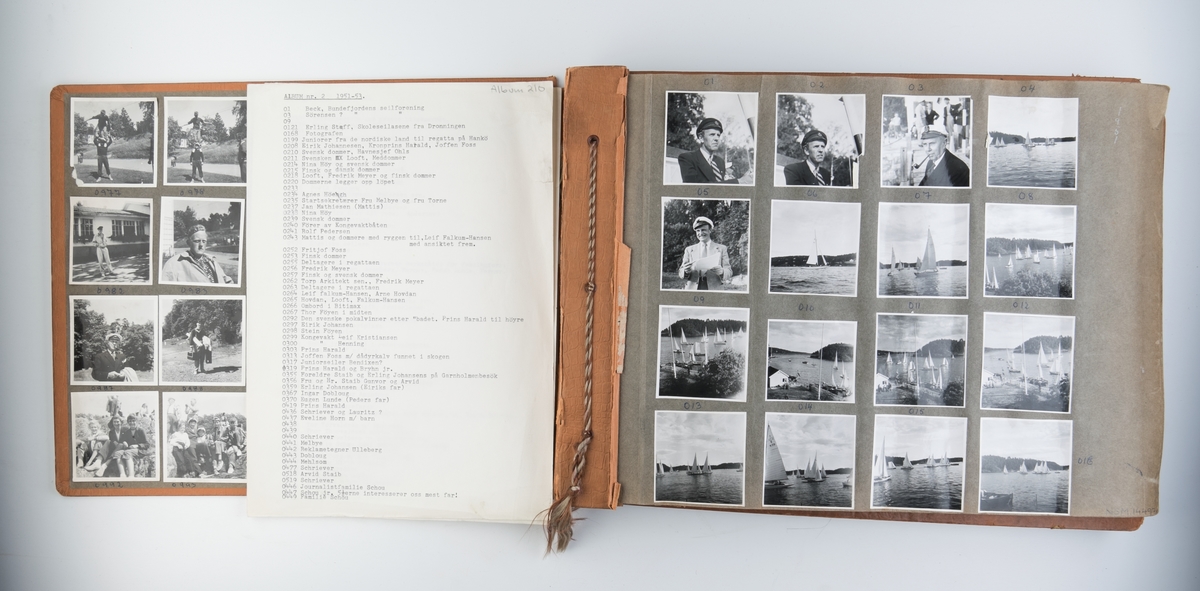 Album 2 b
ALBUM nr. 2 1951-53.
01 Beck, Sandefjordens seilforening
03 Sörensen ? " "
09
0121 Erling Staff, Skoleseilasene fra Dronningen
0168 Fotografen
0199 Juniorer fra de nordiske land til regatta på Hankö
0208 Eirik Johannesen, Kronprins Harald, Joffen Foss
0210 Svensk dommer, Havnesjef Ohls
0211 Svensken Looft, Hebdommer
0214 Nina Höy og svensk dommer
0215 Finsk og dansk dommer
0218 Looft, Fredrik Meyer og finsk dommer
0220 Dommerne legger opp löpet
0233
0234 Agnes
0235 Startsekretærer Fru Melbye og fru Torne
0237 Jan Mathiesen (Mattis)
0238 Nina Höy
0239 Svensk dommer
0240 Förer av Kongevaktbåten
0241 Rolf Pedersen
0243 Mattis og dommere med ryggen til. Leif Falkum-Hansen
med ansiktet frem.
0252 Fritjof Foss
0253 Finsk dommer
0255 Deltagere i regattaen
0256 Fredrik Meyer
0257 Finsk og svensk dommer
0262 Torp Arkitekt sen., Fredrik Meyer
0263 Deltagere i regattaen
0264 Leif Falkum-Hansen, Arne Hovdan
0265 Hovdan, Looft, Falkum-Hansen
0266 Ombord i Ritimas
0267 Thor Föyen i midten
0292 Den svenske pokalvinner etter "badet. Prins Harald til höyre
0297 Eirik Johansen
0298 Stein Föyen
0299 Kongevakt Leif Kristiansen
0300 " Henning
0303 Prins Harald
0313 Joffen Foss m/ dådyrkalv funnet i skogen
0317 Juniorseiler Bendixen?
0319 Prins Harald og jr.
0355 Foreldre Staib og Erling Johansens på Garnholmenbesök
0356 Fru og Hr. Staib Gunvor og Arvid
0359 Erling Johansen (Eiriks far)
0367 Ingar Dobloug
0370 Eugen Lunde (Peders far)
0419 Prins Harald
0436 Schriever og Lauritz ?
0437 Eveline Horn m/ barn
0438
0439
0440 Schriever
0441 Melbye
0442 Reklametegner Ulleberg
0443 Dobloug
0444 Mehlsom
0477 Schriever
0518 Arvid Staib
0519 Schriever
0446 Journalistfamilie Sehou
0447 Sehou jr. Hvorne interesserer oss mest far!
0449 Familie Sehou
01 02 03 04
05 06 07 08
09 010 011 012
013 014 015
016